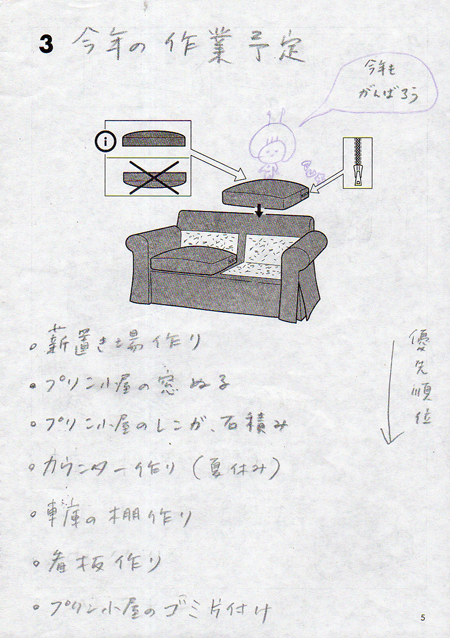 3 今年の作業予定
今年も
がんばろう
i
・薪置き場作り
・プリン小屋の窓ぬる
・プリン小屋のレンガ、石積み
・カウンター作り(夏休み)
・車庫の棚作り
・看板作り
・プリン小屋のゴミ片付け
優先順位
5